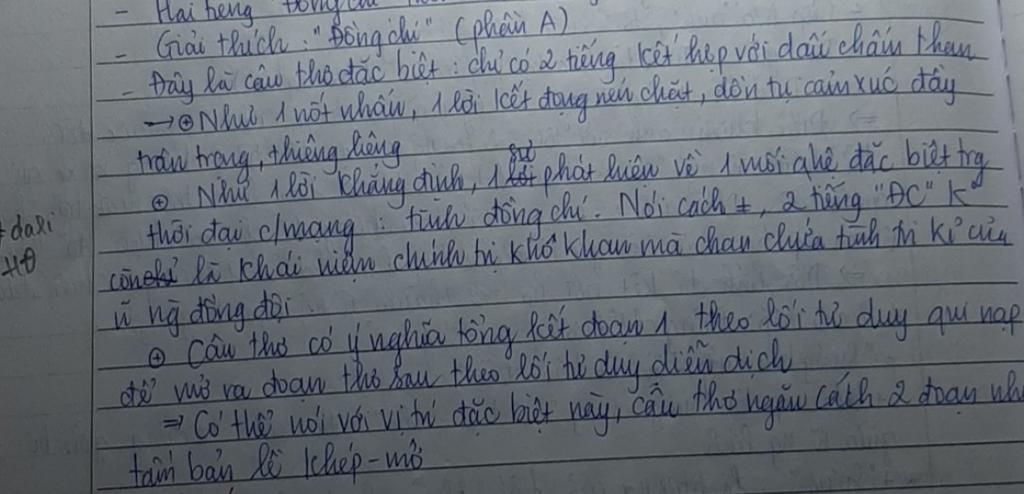 - Hai tiếng "Đồng chí
- Giải thích: "Đồng chí" (phần A)
- Đây là câu thơ đặc biệt: chỉ có 2 tiếng kết hợp với dấu chấm than
→ ⊕ Như 1 nốt nhấn, 1 lời kết đọng nén chặt, dồn tụ cảm xúc đầy
trân trọng, thiêng liêng
⊕ Như 1 lời khẳng định, 1 sự phát hiện về 1 mối qhệ đặc biệt trg
thời đại c/mạng: tình đồng chí. Nói cách ≠, 2 tiếng "ĐC" K°
còn là khái niệm chính trị khô khan mà chan chứa tình tri kỉ của
ng đồng đội.
⊕ Câu thơ có ý nghĩa tổng kết đoạn 1 theo lối tư duy qui nạp
để mở ra đoạn thơ sau theo lối tư duy diễn dịch
⇒ Có thể nói với vị trí đặc biệt này, câu thơ ngăn cách 2 đoạn như
tấm bản lề khép-mở